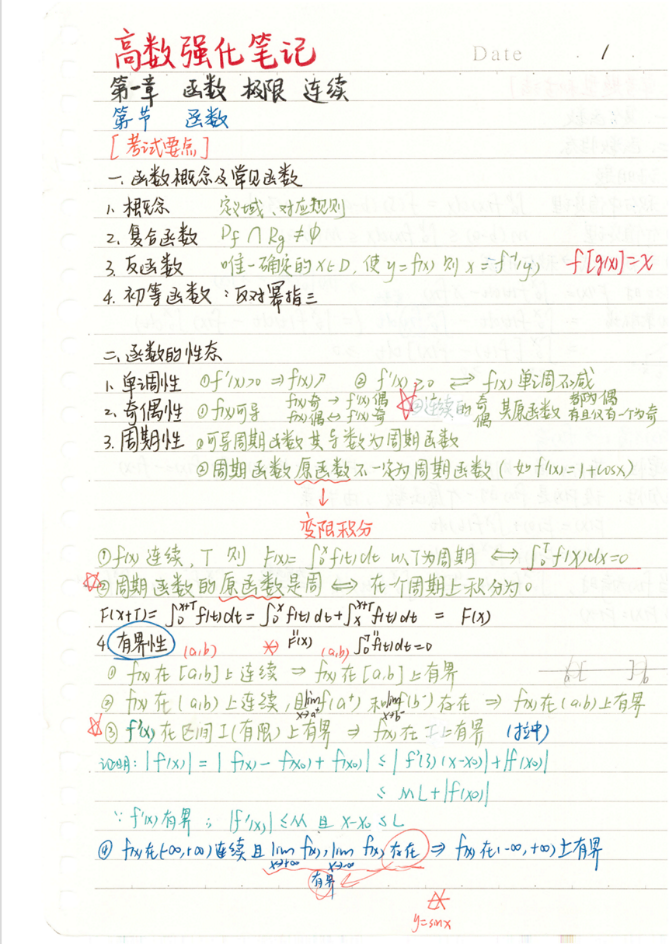 高数强化笔记
Date 1
第一章 函数 极限 连续
第一节 函数
[考试要点]
一.函数概念及常见函数
1. 概念 定义域、对应规则
2. 复合函数 Df∩Rg≠∅
3. 反函数 唯一确定的x∈D,使y=f(x) 则 x=f⁻¹(y) f[g(x)]=x
4. 初等函数:反对幂指三
二.函数的性态
1. 单调性 ①f'(x)>0 ⇒ f(x)↗ ②f'(x)≥0 ⇔ f(x)单调不减
2. 奇偶性 ①f(x)可导 f(x)奇→f'(x)偶 f(x)偶↔f'(x)奇 ☆②连续的奇 偶 其原函数 都为偶 有且仅有一个为奇
3. 周期性 ①可导周期函数其导数为周期函数
②周期函数原函数不一定为周期函数(如f'(x)=1+cosx)
↓
变限积分
①f(x)连续,T 则 F(x)=∫₀ˣf(t)dt 以T为周期 ⇔ ∫₀ᵀf(x)dx=0
☆②周期函数的原函数是周 ⇔ 在一个周期上积分为0
F(x+T)=∫₀ˣ⁺ᵀf(t)dt=∫₀ˣf(t)dt+∫ₓˣ⁺ᵀf(t)dt = F(x)
4. 有界性 (a,b) F(x) (a,b) ∫₀ᵀf(t)dt=0
①f(x)在[a,b]上连续 ⇒ f(x)在[a,b]上有界
②f(x)在(a,b)上连续,且lim x→a⁺ f(a⁺)和lim x→b⁻ f(b⁻)存在 ⇒ f(x)在(a,b)上有界
☆③f'(x)在区间I(有限)上有界 ⇒ f(x)在I上有界 (拉中)
证明:|f(x)|=|f(x)-f(x₀)+f(x₀)|≤|f'(ξ)(x-x₀)|+|f(x₀)|
≤ML+|f(x₀)|
∵f'(x)有界 ∴|f'(x)|≤M 且 x-x₀≤L
④f(x)在(-∞,+∞)连续且lim x→+∞ f(x),lim x→-∞ f(x)存在 ⇒ f(x)在(-∞,+∞)上有界
有界
☆
y=sinx